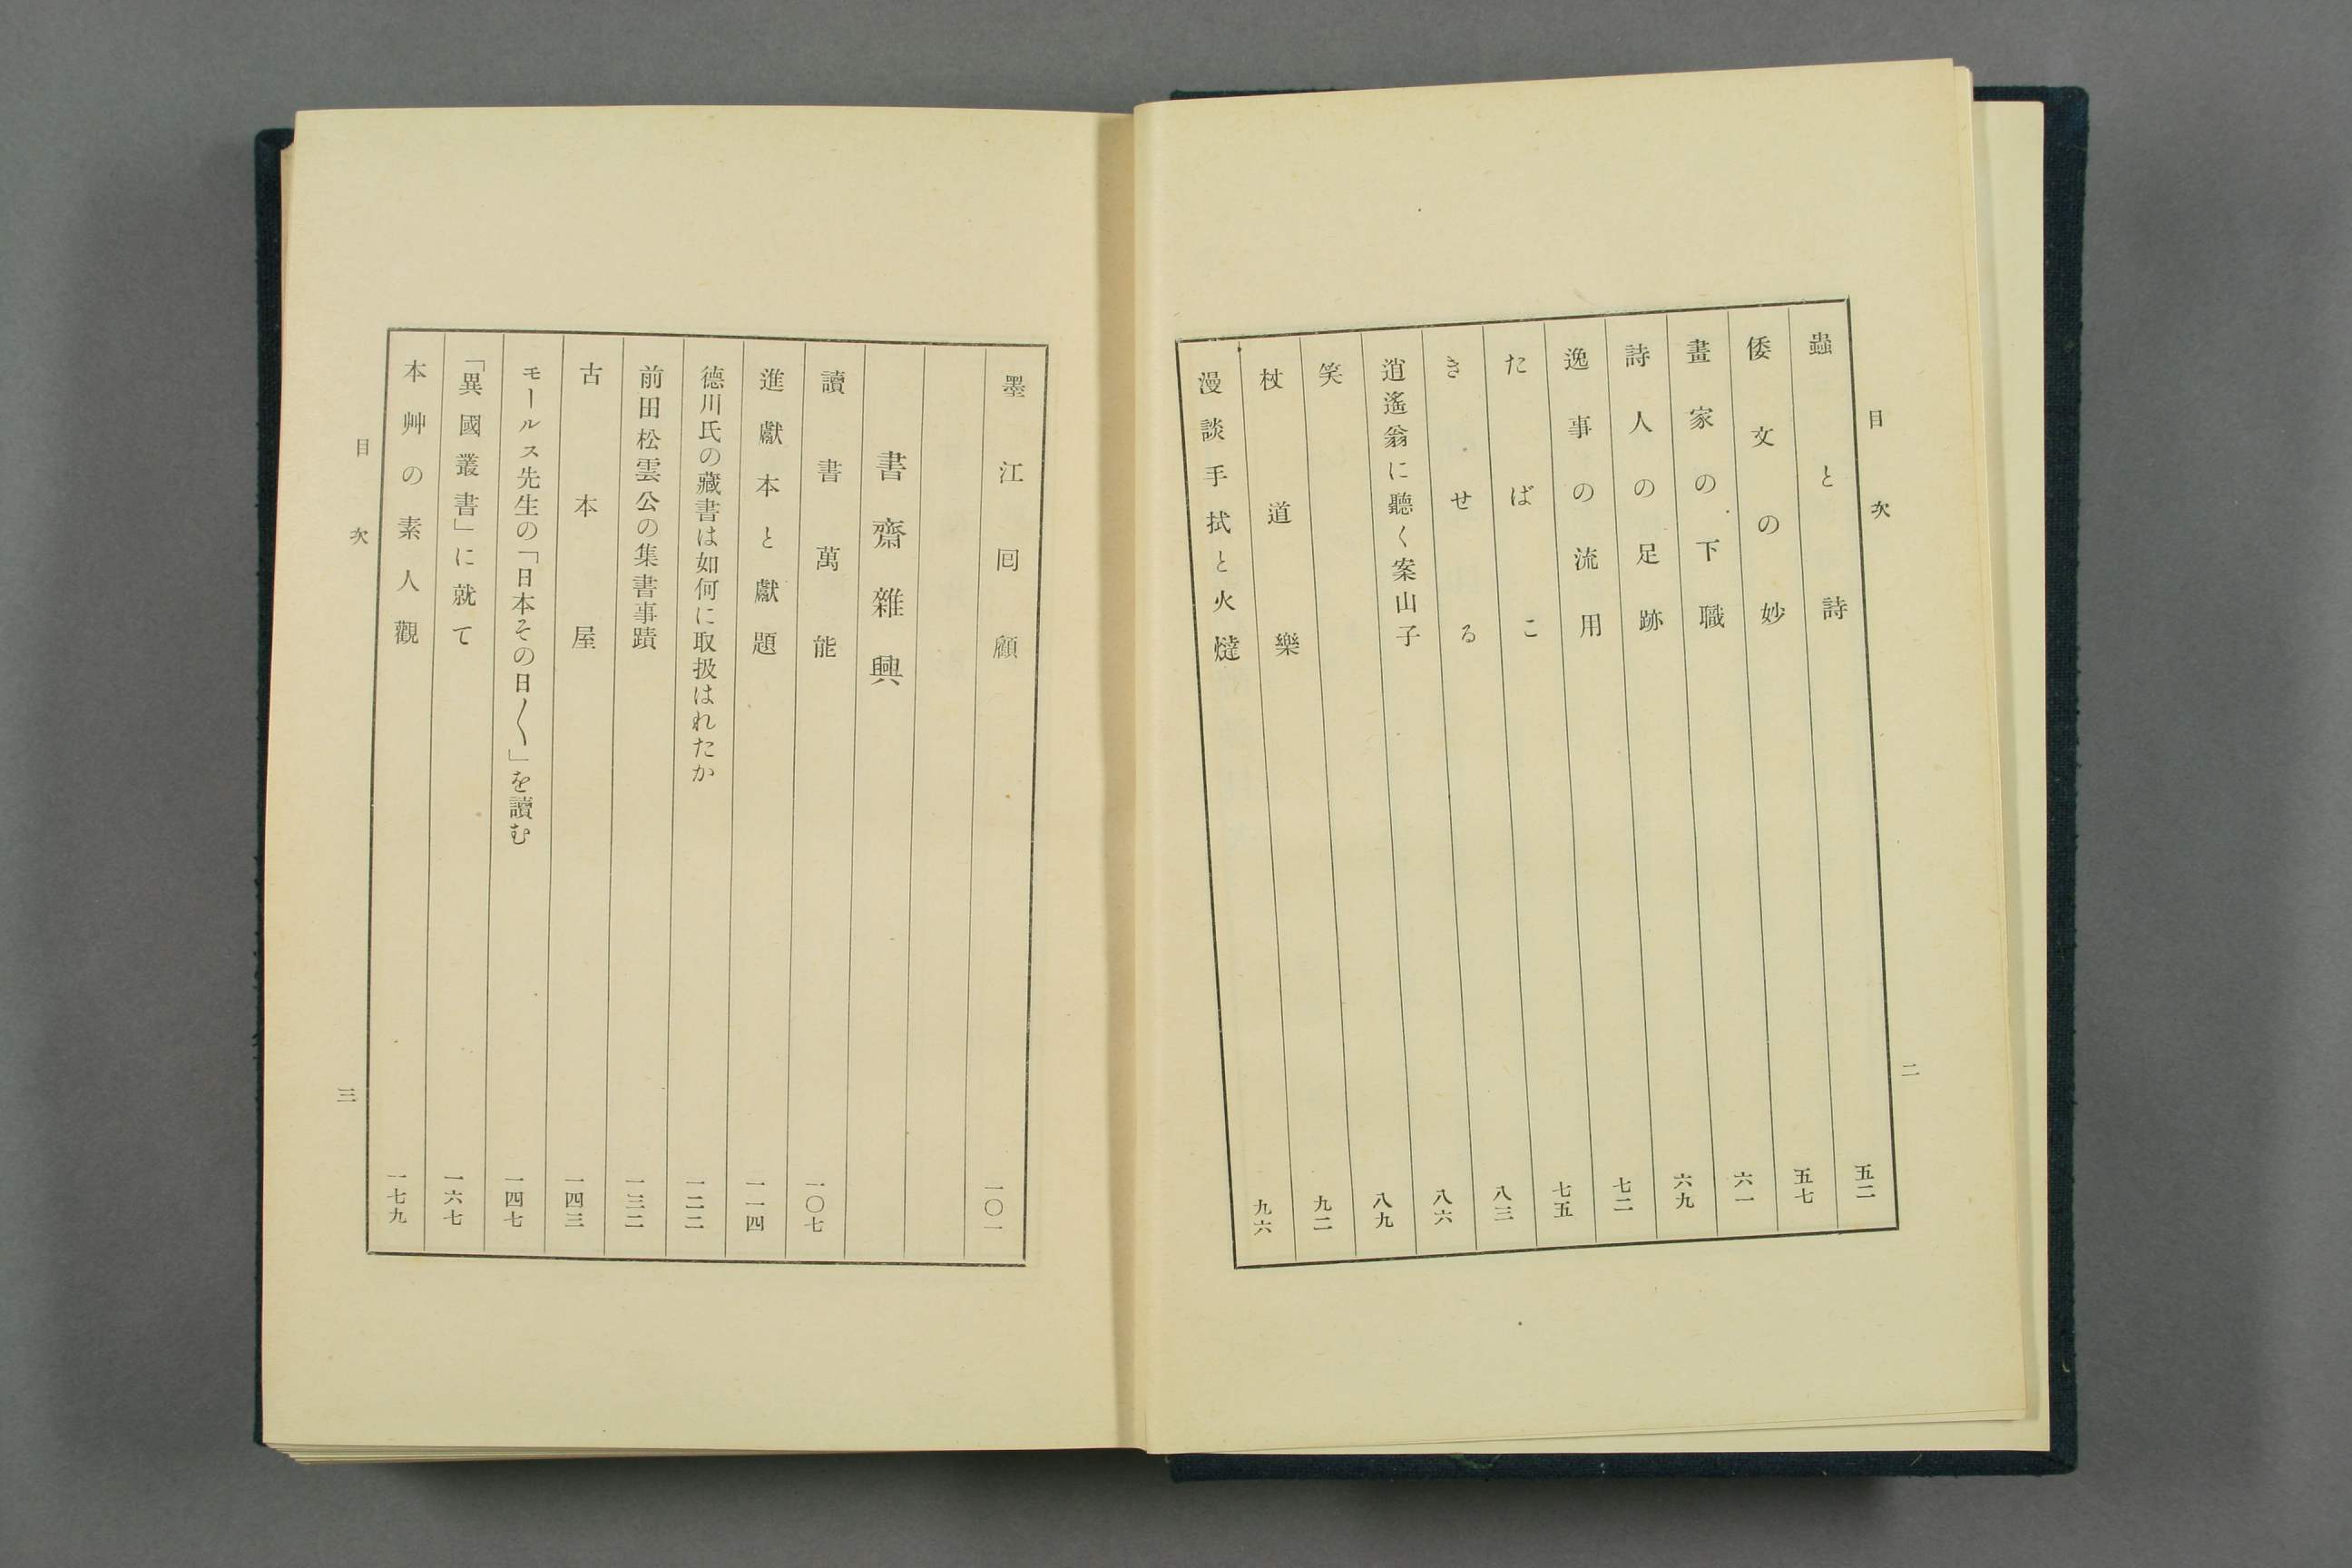 目次
二
蟲と詩 五二
倭文の妙 五七
畫家の下職 六一
詩人の足跡 六九
逸事の流用 七二
たばこ 七五
きせる 八三
逍遙翁に聽く案山子 八六
笑 八九
杖道樂 九二
漫談手拭と火燵 九六
墨江囘顧 一〇一
書齋雜興
讀書萬能 一〇七
進獻本と獻題 一一四
德川氏の藏書は如何に取扱はれたか 一二二
前田松雲公の集書事蹟 一三二
古本屋 一四三
モールス先生の「日本その日〳〵」を讀む 一四七
「異國叢書」に就て 一六七
本艸の素人觀 一七九
目次
三